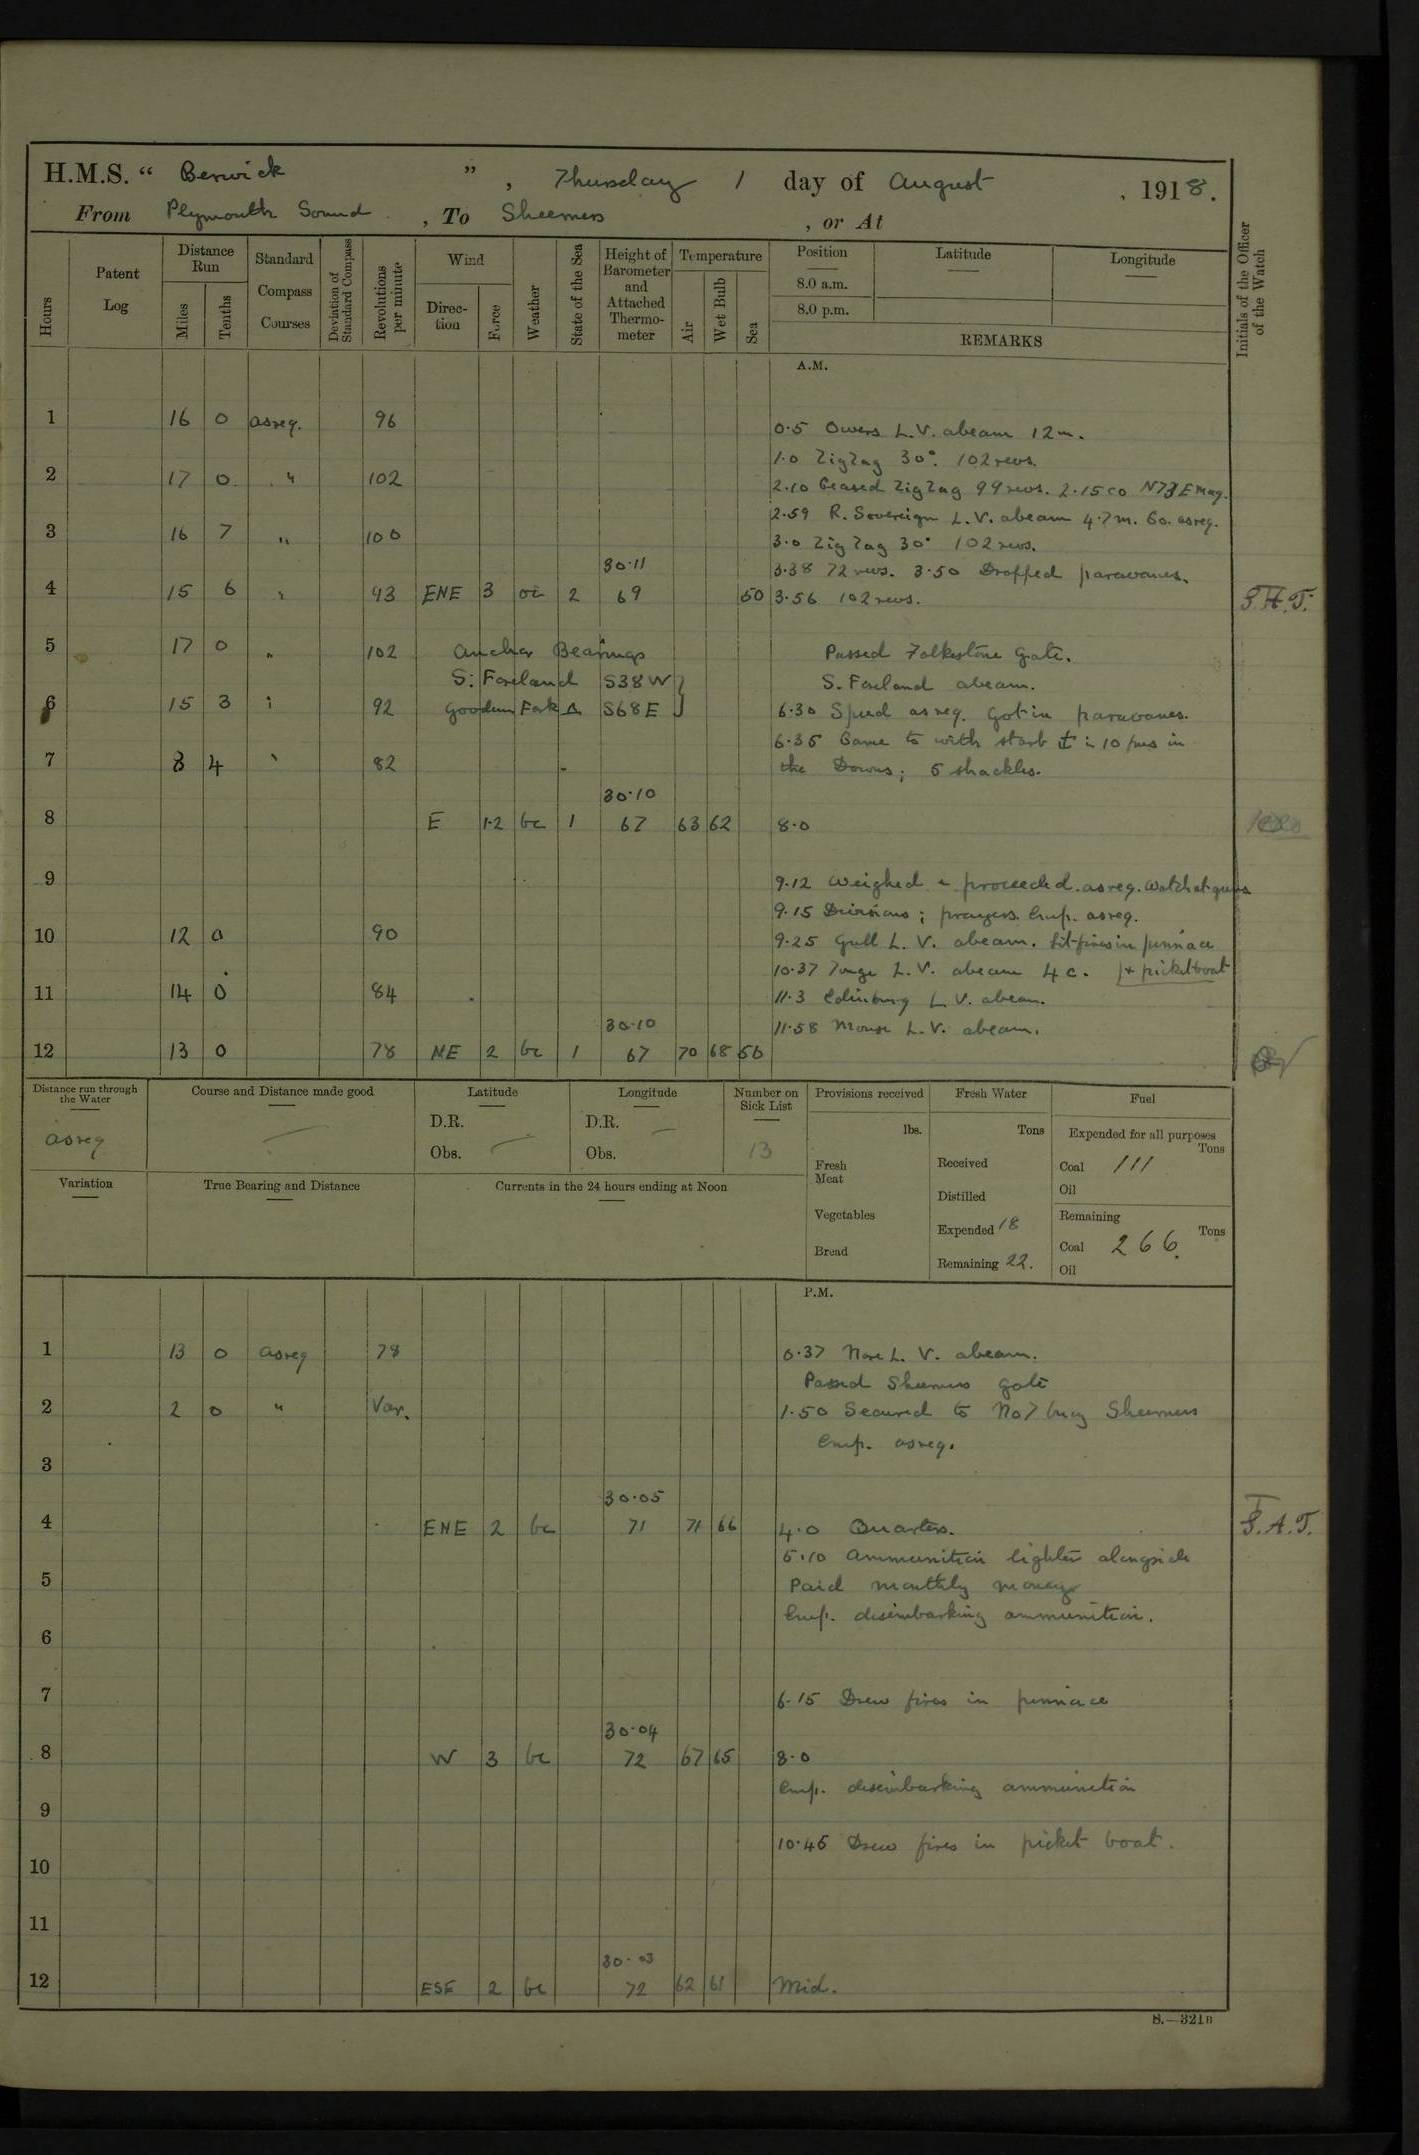 H.M.S. “ Berwick ”, Thursday 1 day of August , 1918.
From Plymouth Sound , To Sheerness , or At
Hours
Patent Log
Distance Run
Miles
Tenths
Standard Compass Courses
Deviation of Standard Compass
Revolutions per minute
Wind
Direction
Force
Weather
State of the Sea
Height of Barometer and Attached Thermometer
Temperature
Air
Wet Bulb
Sea
Position
8.0 a.m.
8.0 p.m.
Latitude
Longitude
REMARKS
Initials of the Officer of the Watch
A.M.
1 16 0 asreq. 96
0.5 Owers L.V. abeam 12 m.
1.0 ZigZag 30°. 102 revs.
2 17 0 " 102
2.10 Ceased ZigZag 99 revs. 2.15 co N73E mag.
2.59 R. Sovereign L.V. abeam 4.7 m. Co. asreq.
3 16 7 " 100
3.0 ZigZag 30° 102 revs.
30.11
3.38 72 revs. 3.50 Dropped paravanes.
4 15 6 " 93 ENE 3 oc 2 69 60 3.56 102 revs.
5 17 0 " 102 Anchor Bearings Passed Folkestone Gate.
S. Foreland S38W S. Foreland abeam.
6 15 3 " 92 Goodwin Fork S68E 6.30 Speed asreq. Got in paravanes.
6.35 Came to with starb ⚓ in 10 fms in
7 8 4 " 82 the Downs; 5 shackles.
30.10
8 E 1.2 bc 1 67 63 62 8.0
9
9.12 Weighed & proceeded asreq. Watch at guns
9.15 Divisions; prayers. Emp. asreq.
10 12 0 90
9.25 Gull L.V. abeam. Lit fires in pinnace
10.37 Tongue L.V. abeam 4 c. & picketboat
11 14 0 84
11.3 Edinburg L.V. abeam.
30.10 11.58 Mouse L.V. abeam.
12 13 0 78 NE 2 bc 1 67 70 68 56
Distance run through the Water
asreq
Course and Distance made good
Latitude
D.R.
Obs.
Longitude
D.R.
Obs.
Number on Sick List
13
Provisions received
lbs.
Fresh Meat
Vegetables
Bread
Fresh Water
Tons
Received
Distilled
Expended 18
Remaining 22.
Fuel
Expended for all purposes
Tons
Coal 111
Oil
Remaining
Tons
Coal 266.
Oil
Variation
True Bearing and Distance
Currents in the 24 hours ending at Noon
P.M.
1 13 0 asreq 78 0.37 Nore L.V. abeam.
Passed Sheerness Gate
2 2 0 " Var. 1.50 Secured to No 7 buoy Sheerness
Emp. asreq.
3
30.05
4 ENE 2 bc 71 71 66 4.0 Quarters.
5.10 Ammunition lighter alongside
5 Paid monthly money
Emp. disembarking ammunition.
6
7 6.15 Drew fires in pinnace
30.04
8 W 3 bc 72 67 65 8.0
Emp. disembarking ammunition
9
10.45 Drew fires in picket boat.
10
11
30.03
12 ESE 2 bc 72 62 61 Mid.
S.—321B